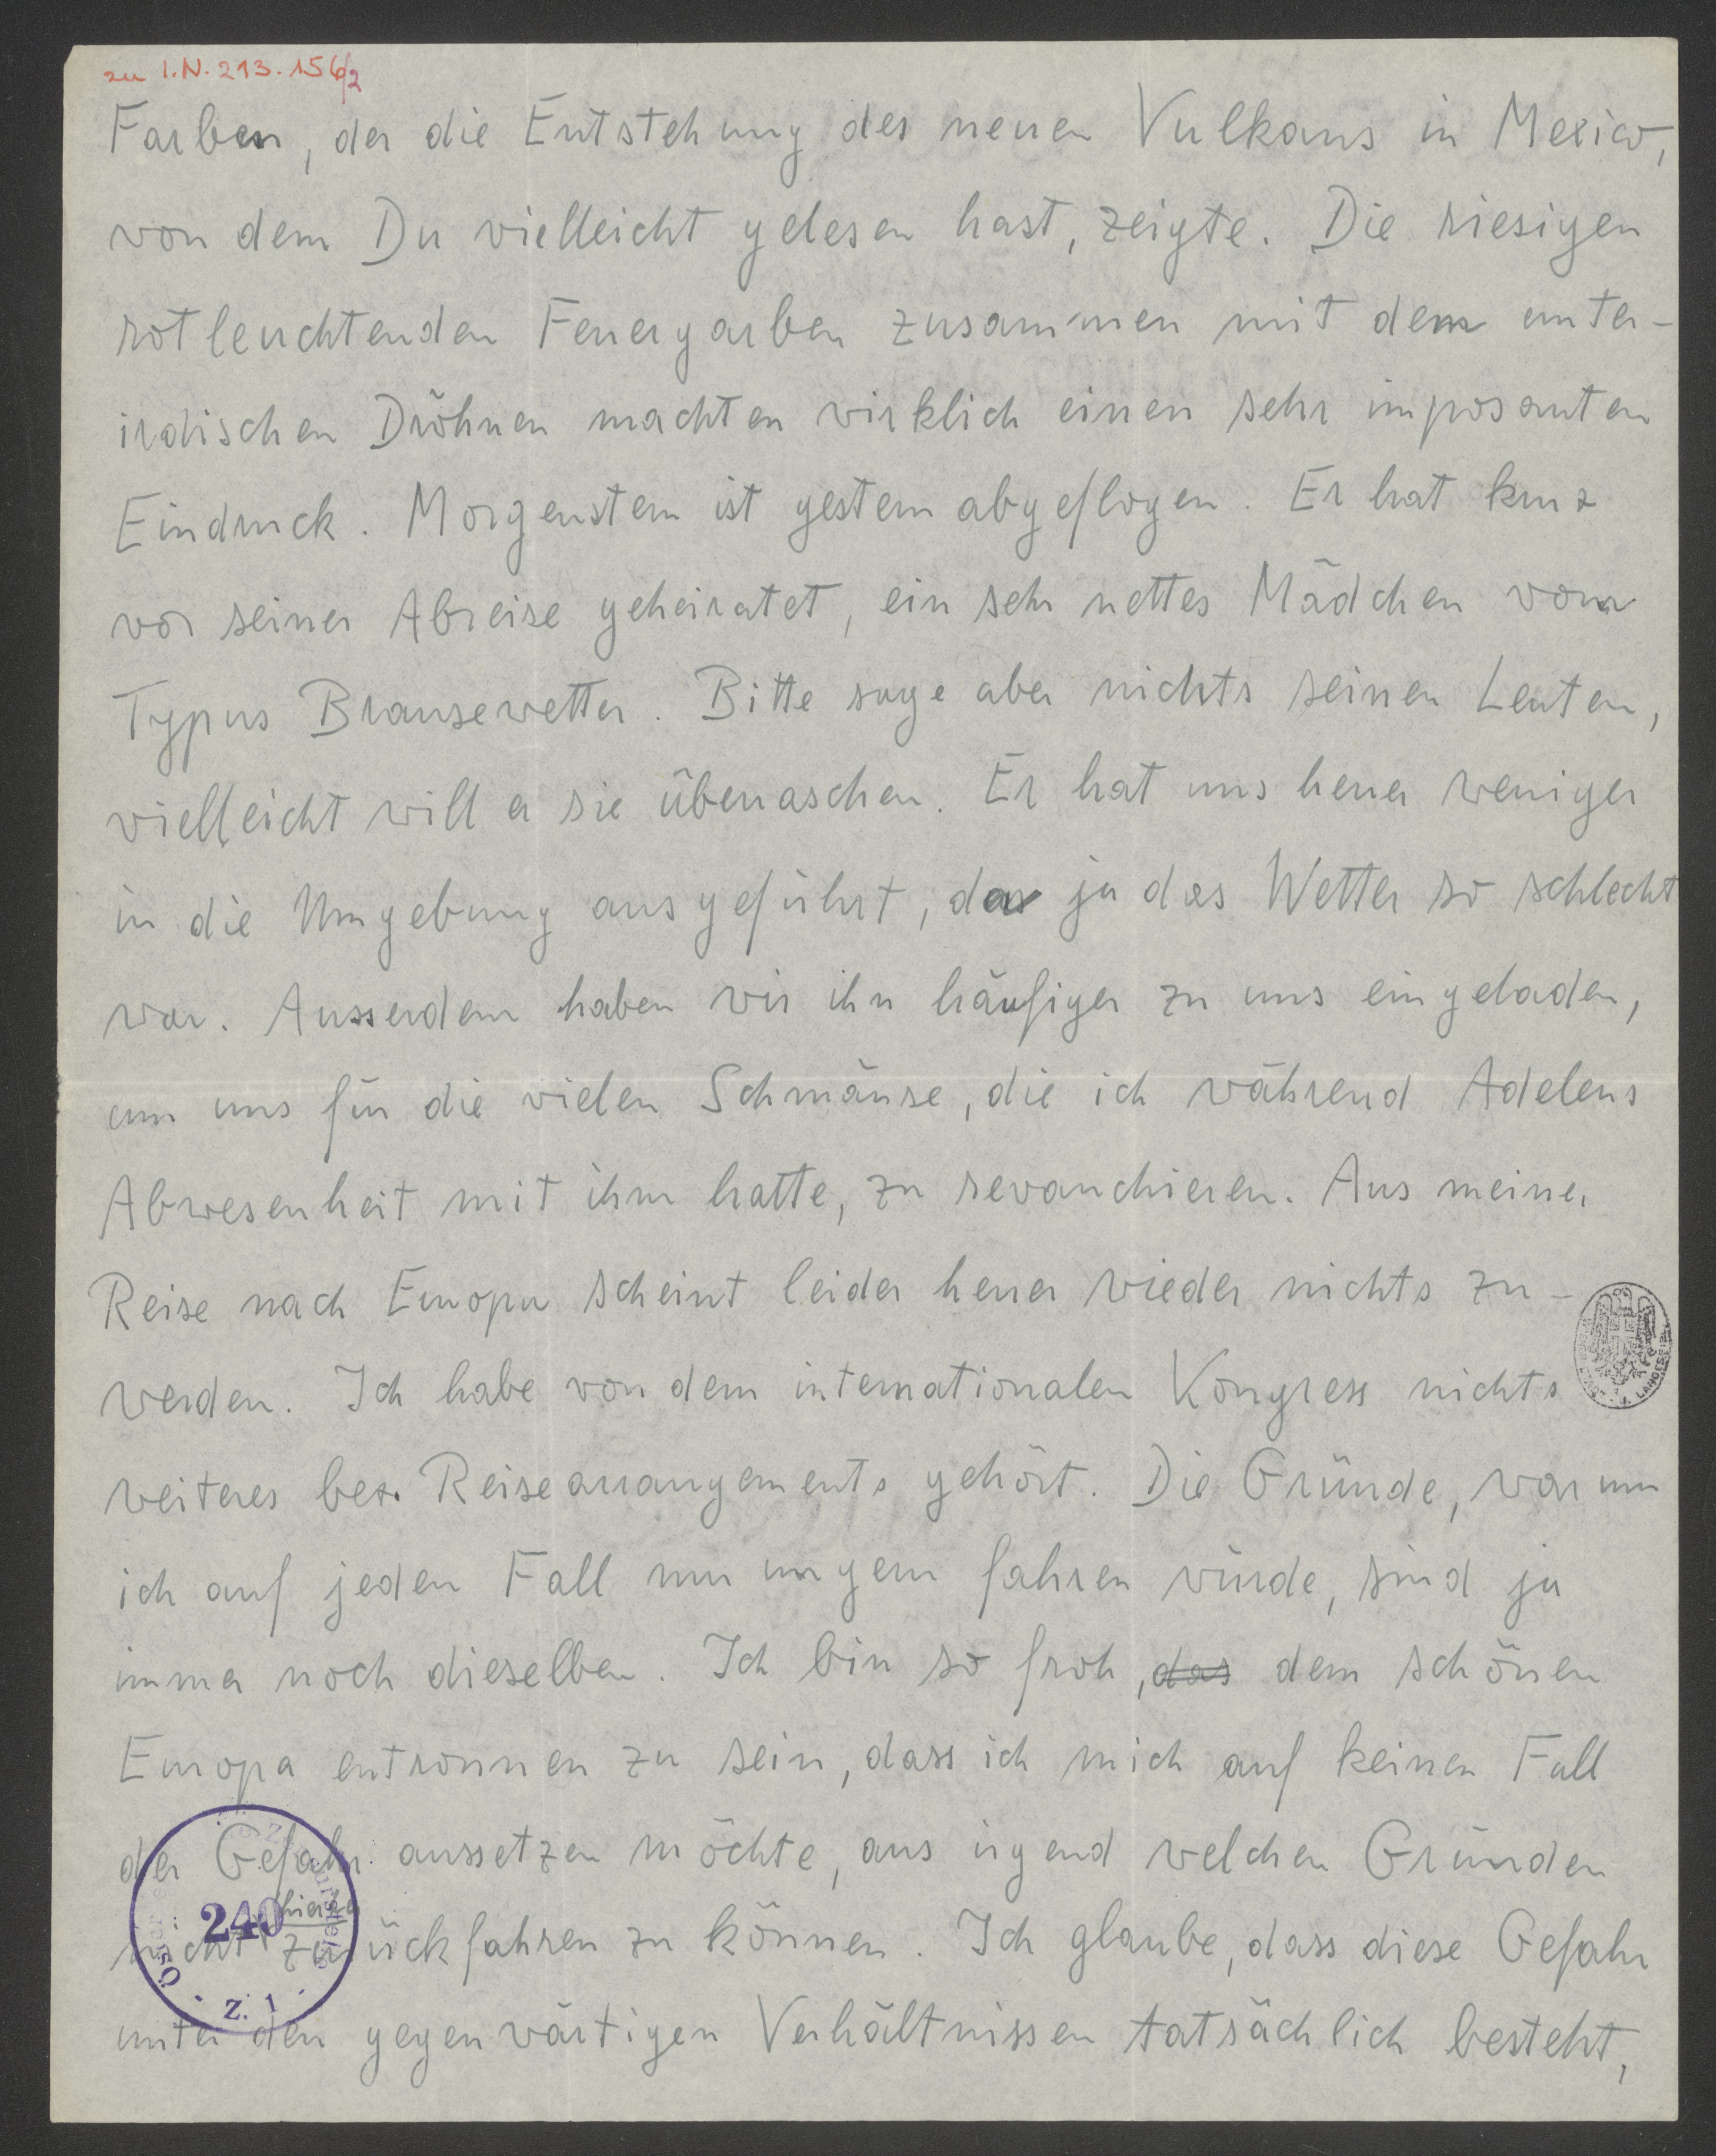 zu I.N. 213.156/2
Farben, der die Entstehung des neuen Vulkans in Mexico,
von dem Du vielleicht gelesen hast, zeigte. Die riesigen
rotleuchtenden Feuergarben zusammen mit dem unter-
irdischen Dröhnen machten wirklich einen sehr imposanten
Eindruck. Morgenstern ist gestern abgeflogen. Er hat kurz
vor seiner Abreise geheiratet, ein sehr nettes Mädchen vom
Typus Brausewetter. Bitte sage aber nichts seinen Leuten,
vielleicht will er sie überraschen. Er hat uns heuer weniger
in die Umgebung ausgeführt, da ja das Wetter so schlecht
war. Ausserdem haben wir ihn häufiger zu uns eingeladen,
um uns für die vielen Schmäuse, die ich während Adelens
Abwesenheit mit ihm hatte, zu revanchieren. Aus meiner
Reise nach Europa scheint leider heuer wieder nichts zu-
werden. Ich habe von dem internationalen Kongress nichts
weiteres bez. Reisearrangements gehört. Die Gründe, warum
ich auf jeden Fall nur ungern fahren würde, sind ja
immer noch dieselben. Ich bin so froh, das dem schönen
Europa entronnen zu sein, dass ich mich auf keinen Fall
der Gefahr aussetzen möchte, aus irgend welchen Gründen
hierher
nicht zurückfahren zu können. Ich glaube, dass diese Gefahr
unter den gegenwärtigen Verhältnissen tatsächlich besteht,
240
Z. 1